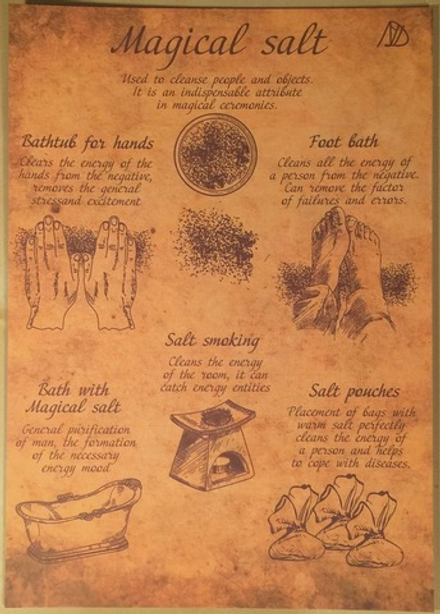 Magical salt
Used to cleanse people and objects.
It is an indispensable attribute
in magical ceremonies.
Bathtub for hands
Clears the energy of the
hands from the negative,
removes the general
stressand excitement.
Foot bath
Cleans all the energy of
a person from the negative.
Can remove the factor
of failures and errors.
Salt smoking
Cleans the energy
of the room, it can
catch energy entities
Bath with
Magical salt
General purification
of man, the formation
of the necessary
energy mood
Salt pouches
Placement of bags with
warm salt perfectly
cleans the energy of
a person and helps
to cope with diseases.